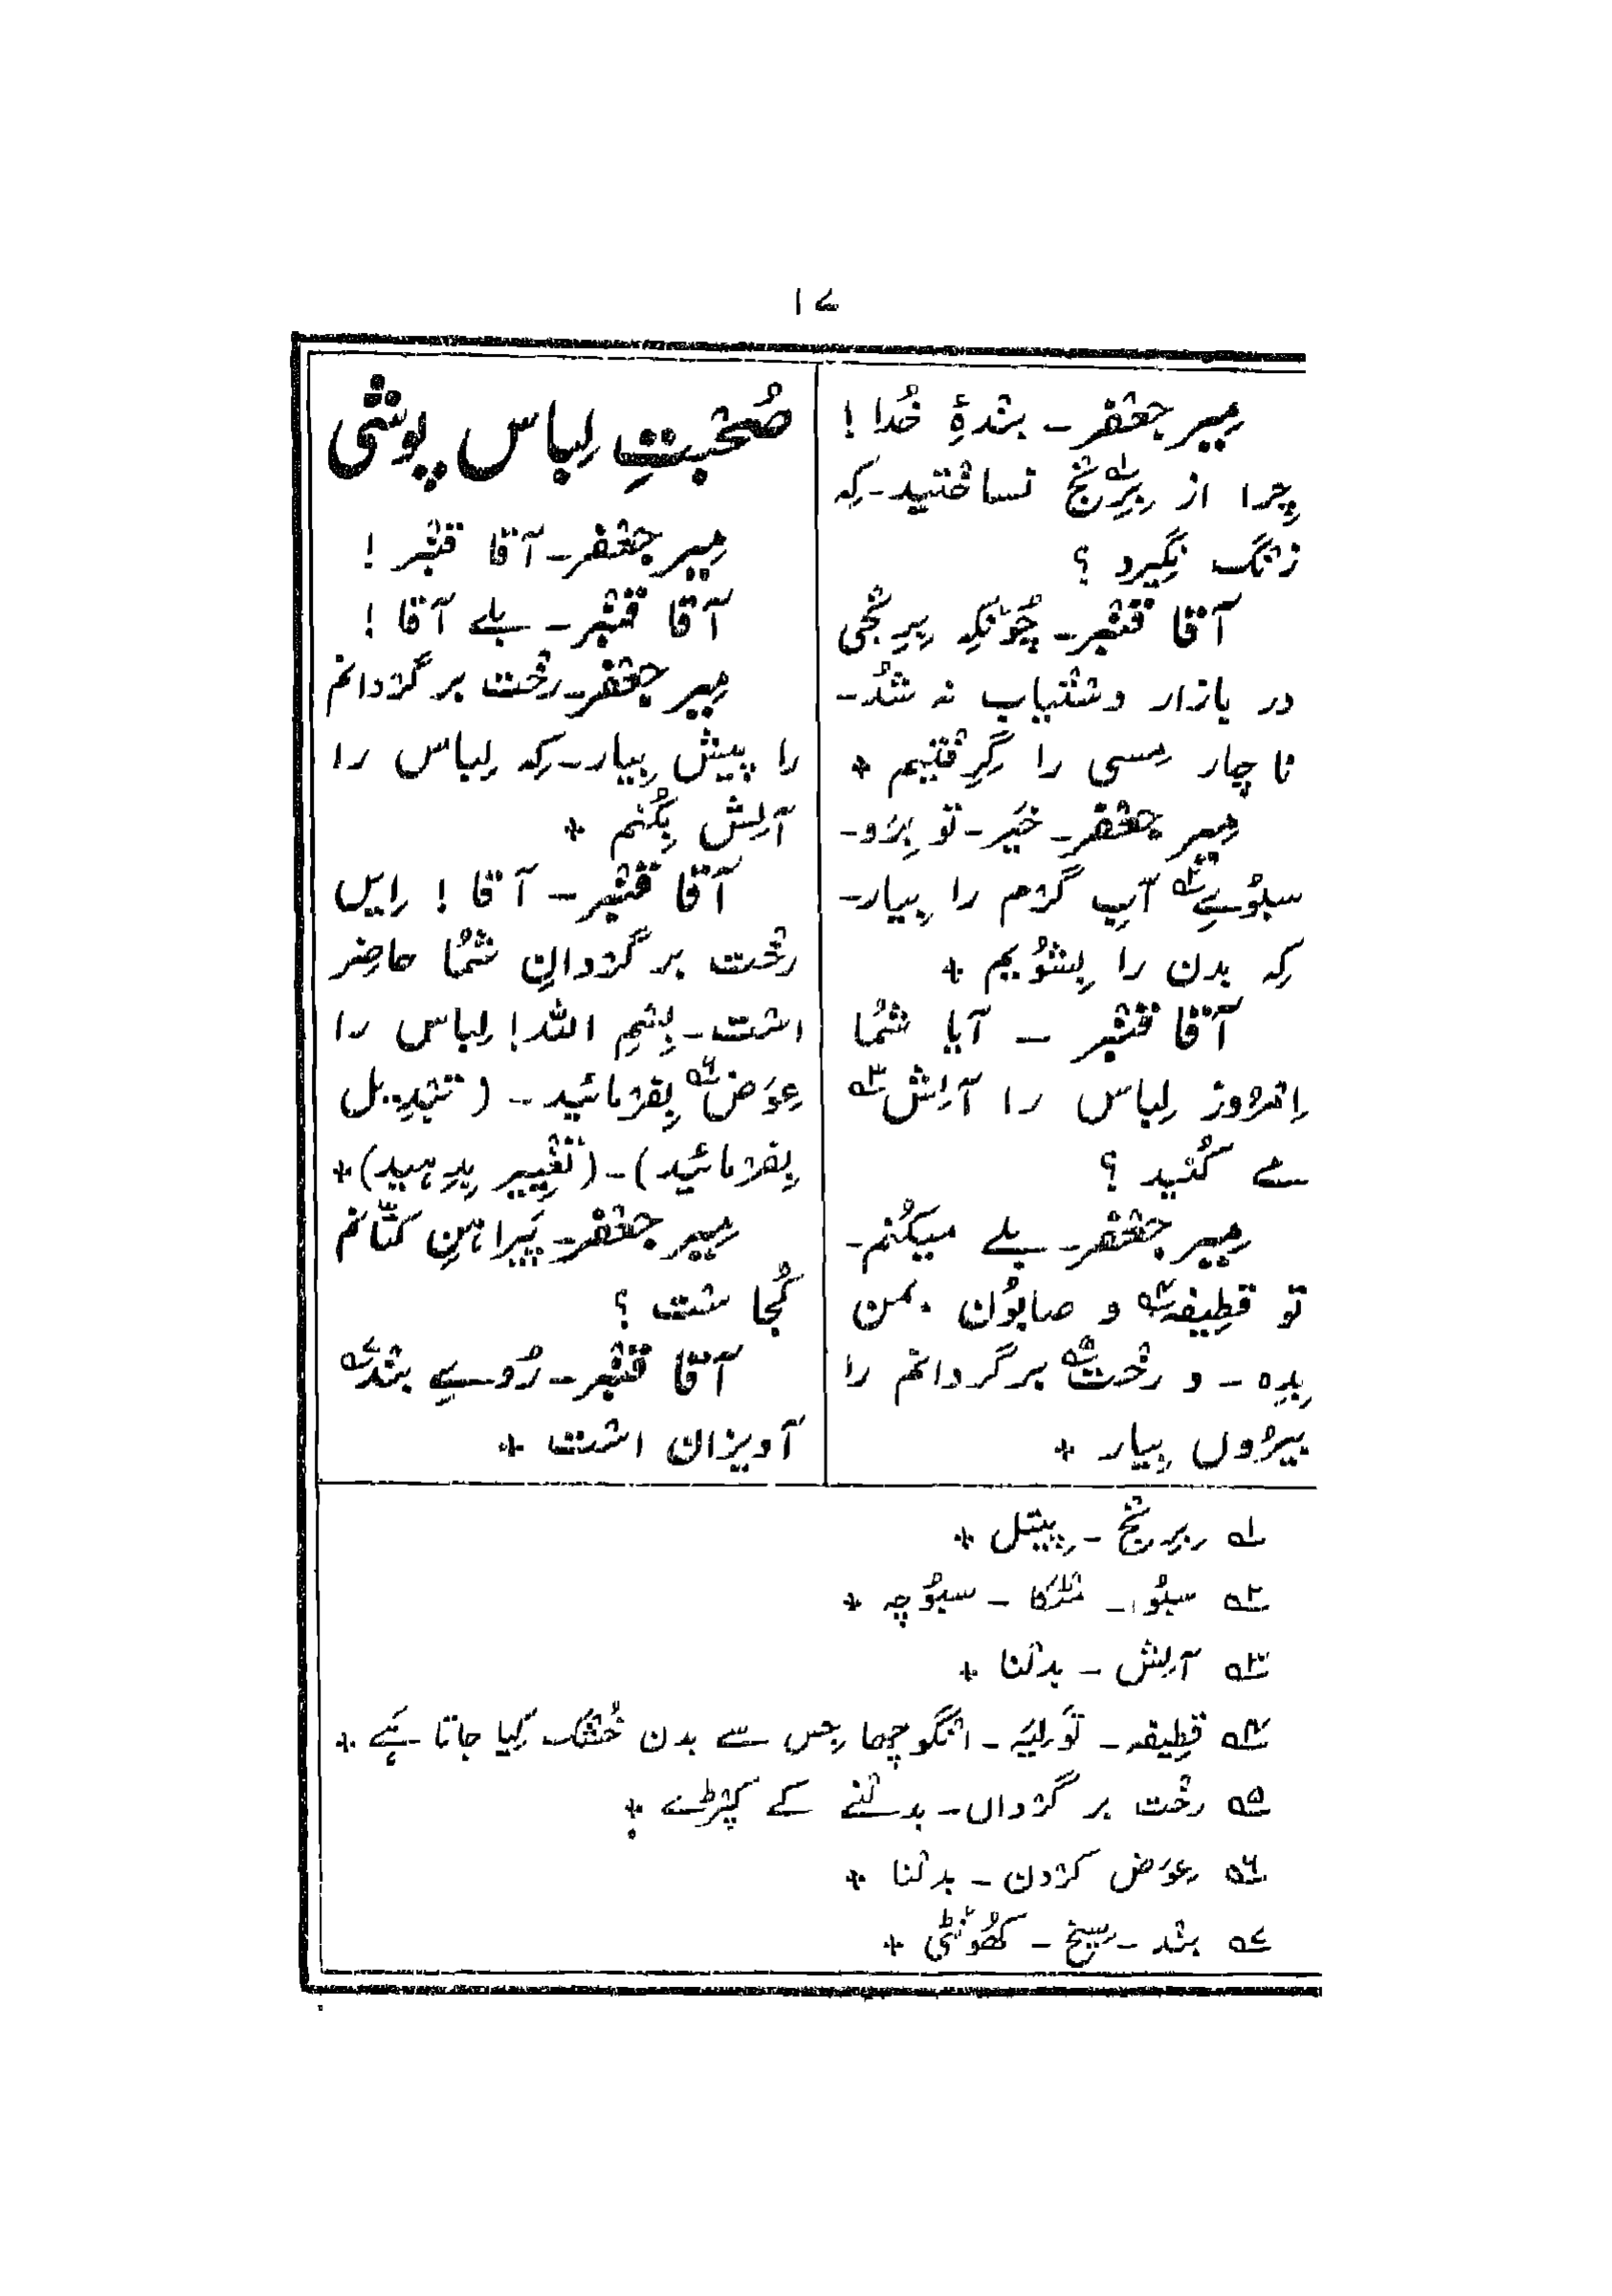 ۱۷
میر جعفر۔ بندۂِ خُدا !
چرا از برِنج۱ نساختید۔ کِہ
زنگ نگیرد ؟
آقا قنبر۔ چُونکِہ برِنجی
در بازار دستیاب نہ شُد۔
ناچار مِسی را گِرِفتیم +
میر جعفر۔ خَیر۔ تو بِرَو۔
سبُوےِ۲ آبِ گرم را بیار۔
کِہ بدن را بِشُویم +
آقا قنبر ۔ آیا شُما
اِمروز لِباس را آلِش۳
مے کُنید ؟
میر جعفر۔ بلے میکُنم۔
تو قطِیفہ۴ و صابُون بمن
بِدِہ ۔ و رخت۵ برگردانم را
بیرُوں بیار +
صُحبتِ لِباس پوشی
میر جعفر۔ آقا قنبر !
آقا قنبر۔ بلے آقا !
میر جعفر۔ رخت برگردانم
را پیش بیار۔ کِہ لِباس را
آلِش بِکُنم +
آقا قنبر ۔ آقا ! اِیں
رخت برگردانِ شُما حاضِر
است۔ بِسْمِ اللہ! لِباس را
عِوَض۶ بِفرمائید ۔ (تبدِیل
بِفرمائید)۔ (تغیِیر بِدِہید)+
میر جعفر۔ پَیراہنِ کتّانم
کُجا ست ؟
آقا قنبر۔ رُوےِ بند۷
آویزان است +
۱ برِنج ۔ پِیتل +
۲ سبُو ۔ مٹکا ۔ سبُوچہ +
۳ آلِش ۔ بدلنا +
۴ قطِیفہ ۔ تَولیَہ ۔ انگوچھا جِس سے بدن خُشک کِیا جاتا ہَے +
۵ رخت برگرداں۔ بدلنے کے کپڑے +
۶ عِوَض کردن ۔ بدلنا +
۷ بند ۔ سِیخ ۔ کھُونٹی +